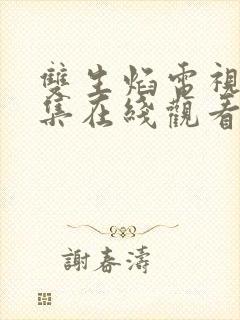 雙生焰電視
集在綫觀看
謝春濤